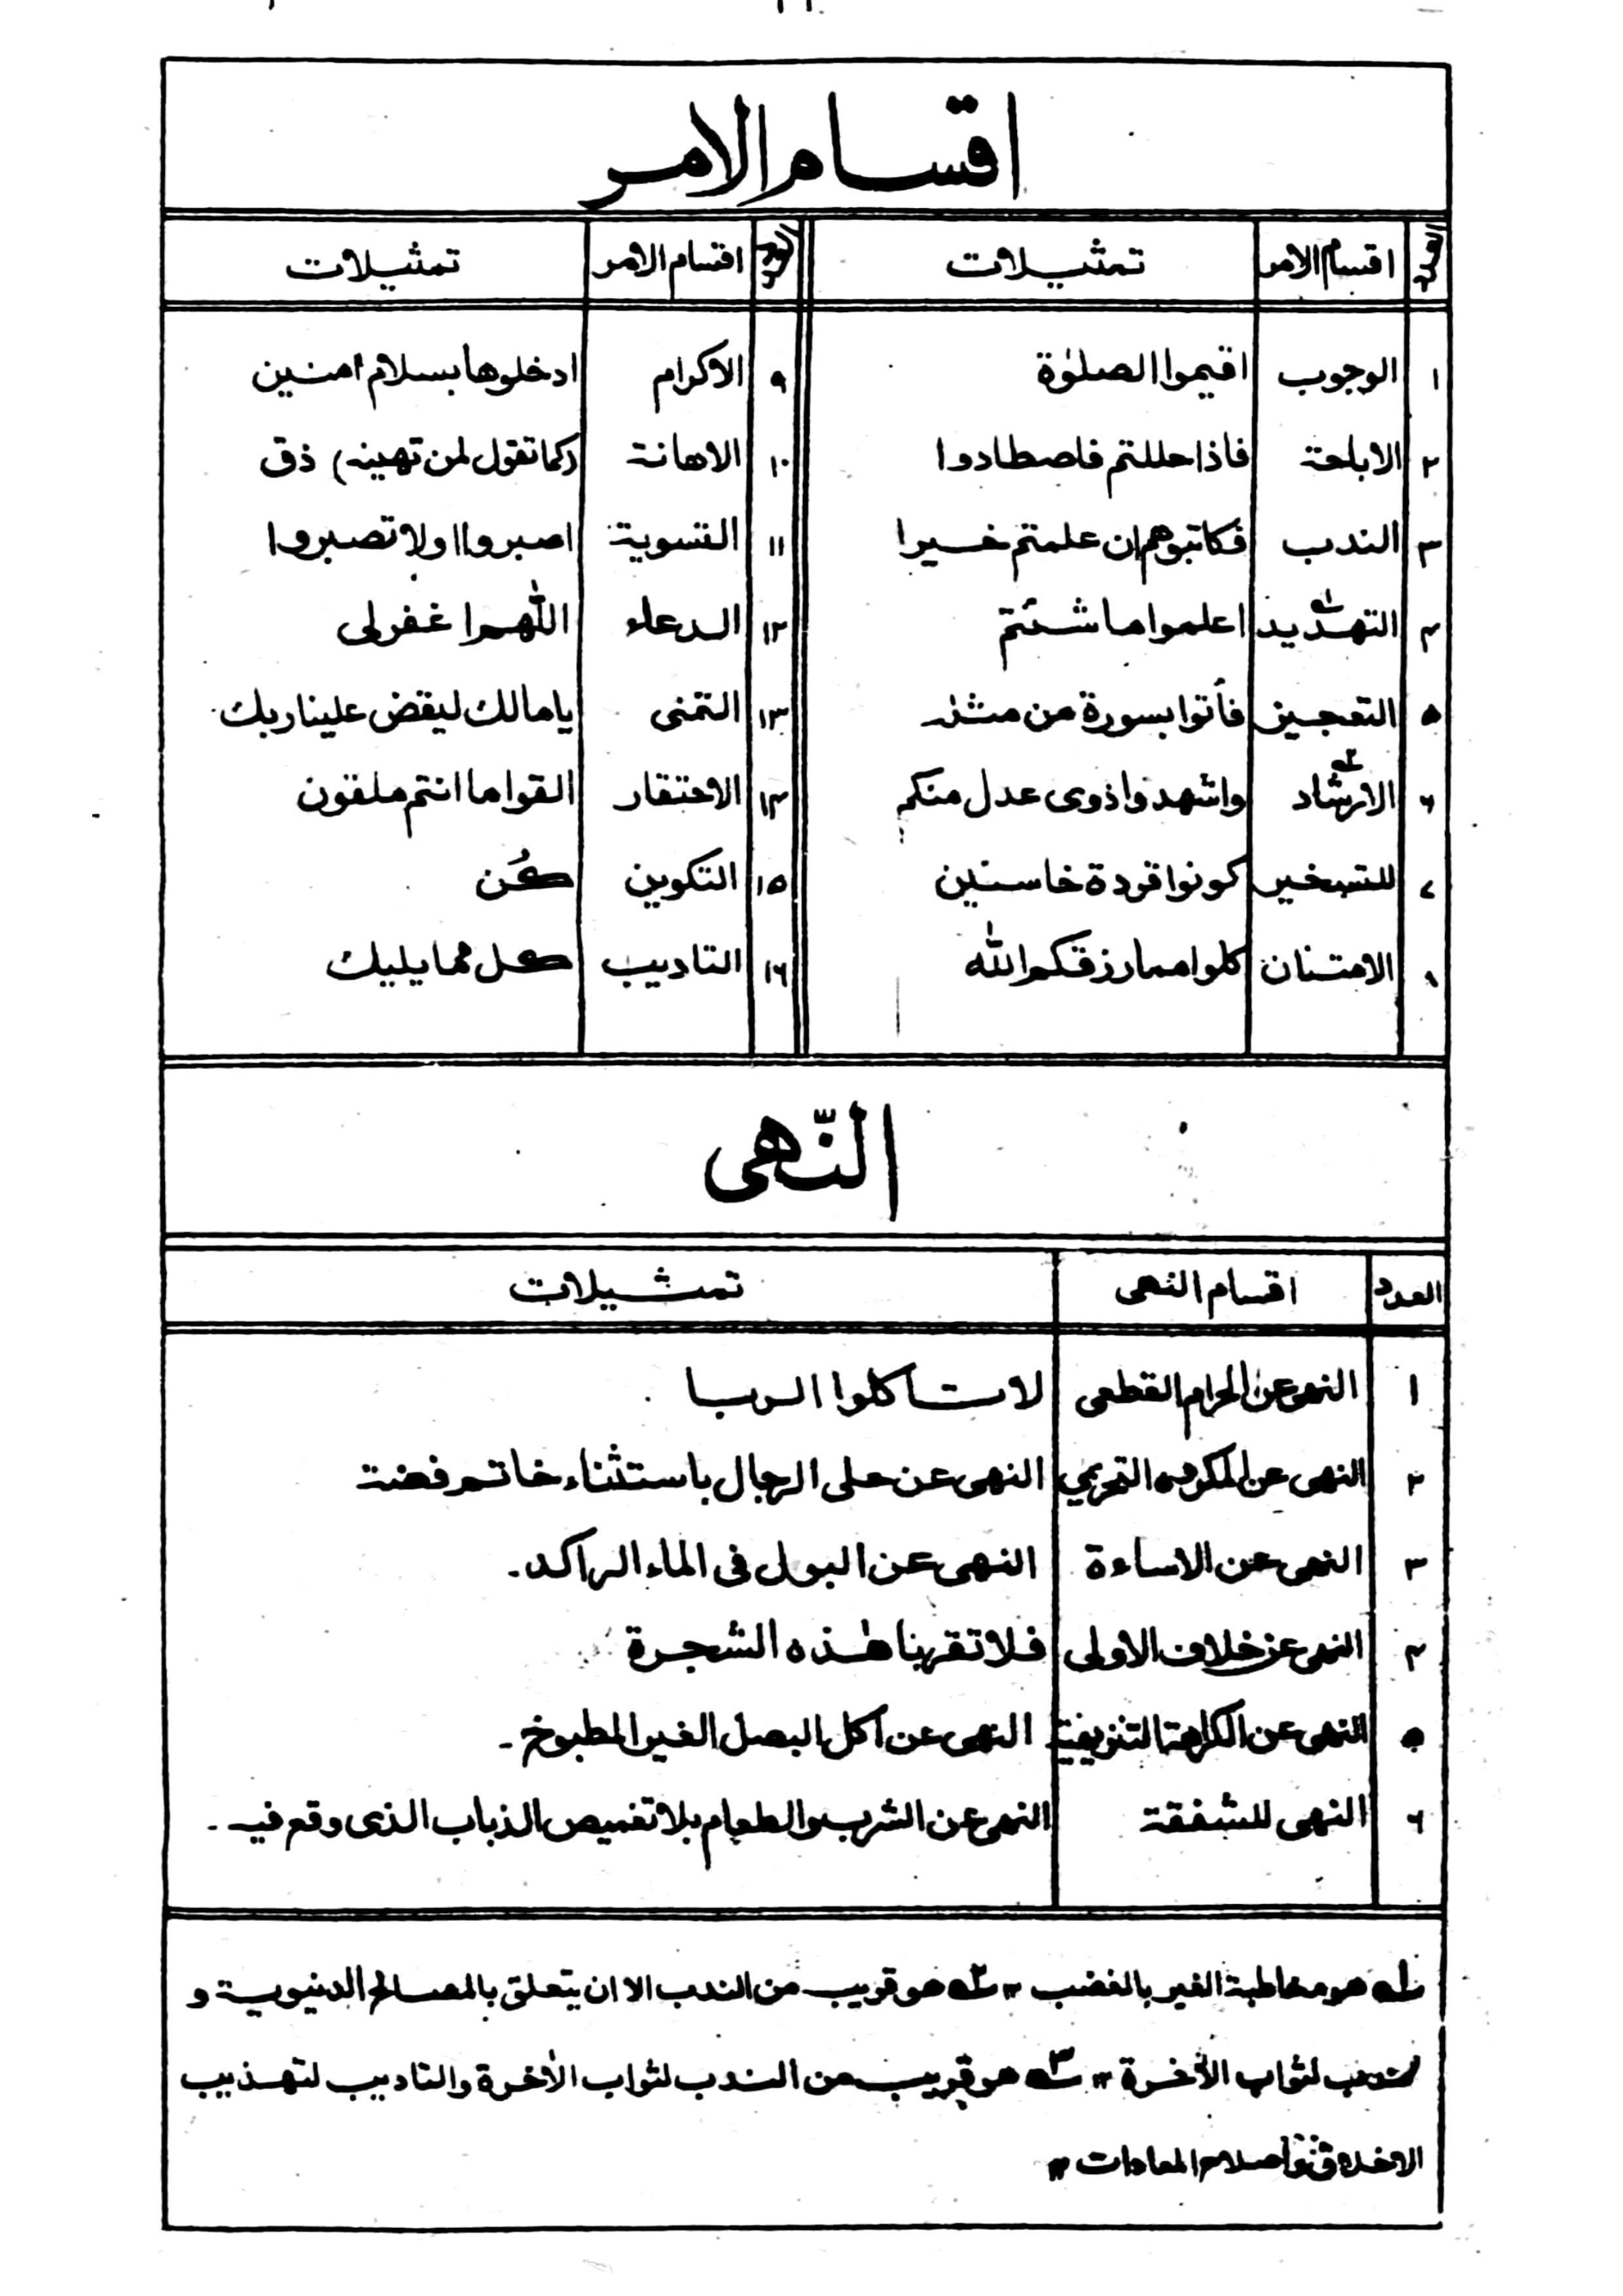 اقسام الامر
العدد اقسام الامر تمثيلات العدد اقسام الامر تمثيلات
١ الوجوب اقيموا الصلوٰة ٩ الاكرام ادخلوها بسلام امنين
٢ الاباحة فاذا حللتم فاصطادوا ١٠ الاهانة (كما تقول لمن تهينه) ذق
٣ الندب فكاتبوهم ان علمتم خيرا ١١ التسوية اصبروا اولا تصبروا
٤ التهديد اعلموا ما شئتم ١٢ الدعاء اللّٰهم اغفرلى
٥ التعجيز فأتوا بسورة من مثله ١٣ التمنى يا مالك ليقض علينا ربك
٦ الارشاد واشهدوا ذوى عدل منكم ١٤ الاحتقار القوا ما انتم ملقون
٧ للتسخير كونوا قردة خاسئين ١٥ التكوين كُن
٨ الامتنان كلوا مما رزقكم الله ١٦ التاديب كل مما يليك
النّهى
العدد اقسام النهى تمثيلات
١ النهى عن الحرام القطعى لا تاكلوا الربا
٢ النهى عن المكروه التحريمي النهى عن حلى الرجال باستثناء خاتم فضة
٣ النهى عن الاساءة النهى عن البول فى الماء الراكد۔
٤ النهى عن خلاف الاولى فلا تقربا هٰذه الشجرة
٥ النهى عن الكراهة التنزيهية النهى عن اكل البصل الغير المطبوخ۔
٦ النهى للشفقة النهى عن الشرب والطعام بلا تغميص الذباب الذى وقع فيه۔
١ه هو مخاطبة الغير بالغضب ١٢ ٢ه هو قريب من الندب الا ان يتعلق بالمصالح الدنيوية و
لثواب الأخرة ١٢ ٣ه هو قريب من الندب لثواب الأخرة والتاديب لتهذيب
الاخلاق واصلاح العادات ١٢